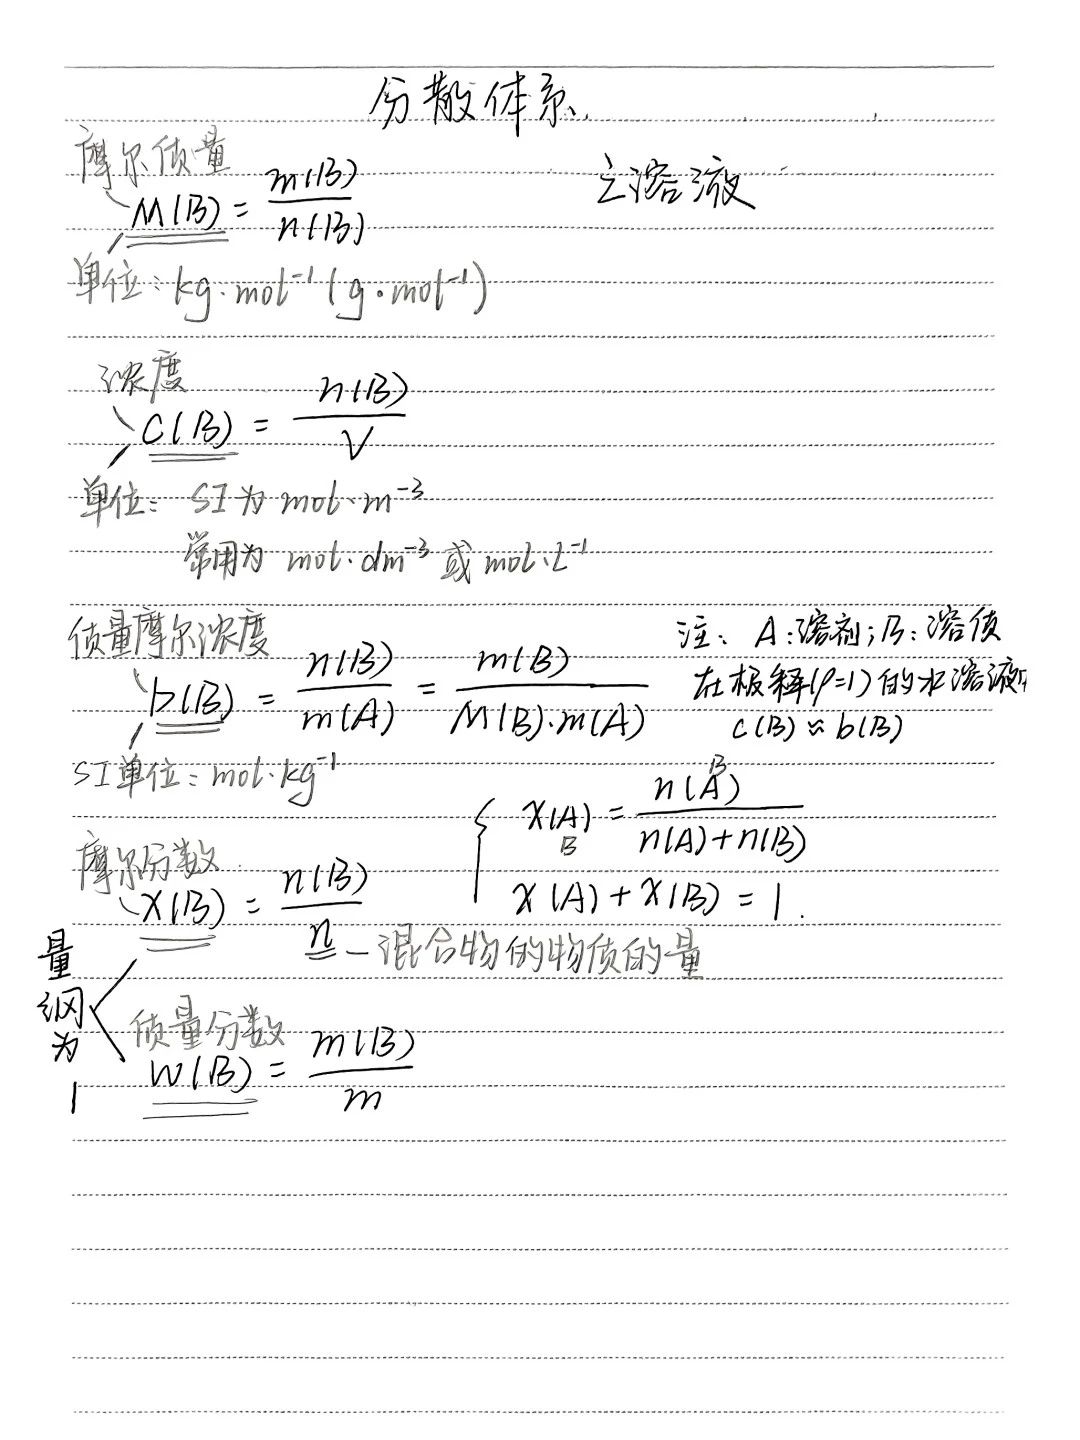 分散体系
之溶液
摩尔质量
M(B) = m(B)/n(B)
单位：kg·mol⁻¹ (g·mol⁻¹)
浓度
C(B) = n(B)/V
单位：SI为 mol·m⁻³
常用为 mol·dm⁻³ 或 mol·L⁻¹
质量摩尔浓度
b(B) = n(B)/m(A) = m(B)/M(B)·m(A)
SI单位：mol·kg⁻¹
注：A:溶剂；B:溶质
在极稀(ρ=1)的水溶液中
c(B) ≈ b(B)
摩尔分数
x(B) = n(B)/n
n — 混合物的物质的量
B
x(A) = n(A)/n(A)+n(B)
B
x(A) + x(B) = 1.
量纲为1
质量分数
w(B) = m(B)/m